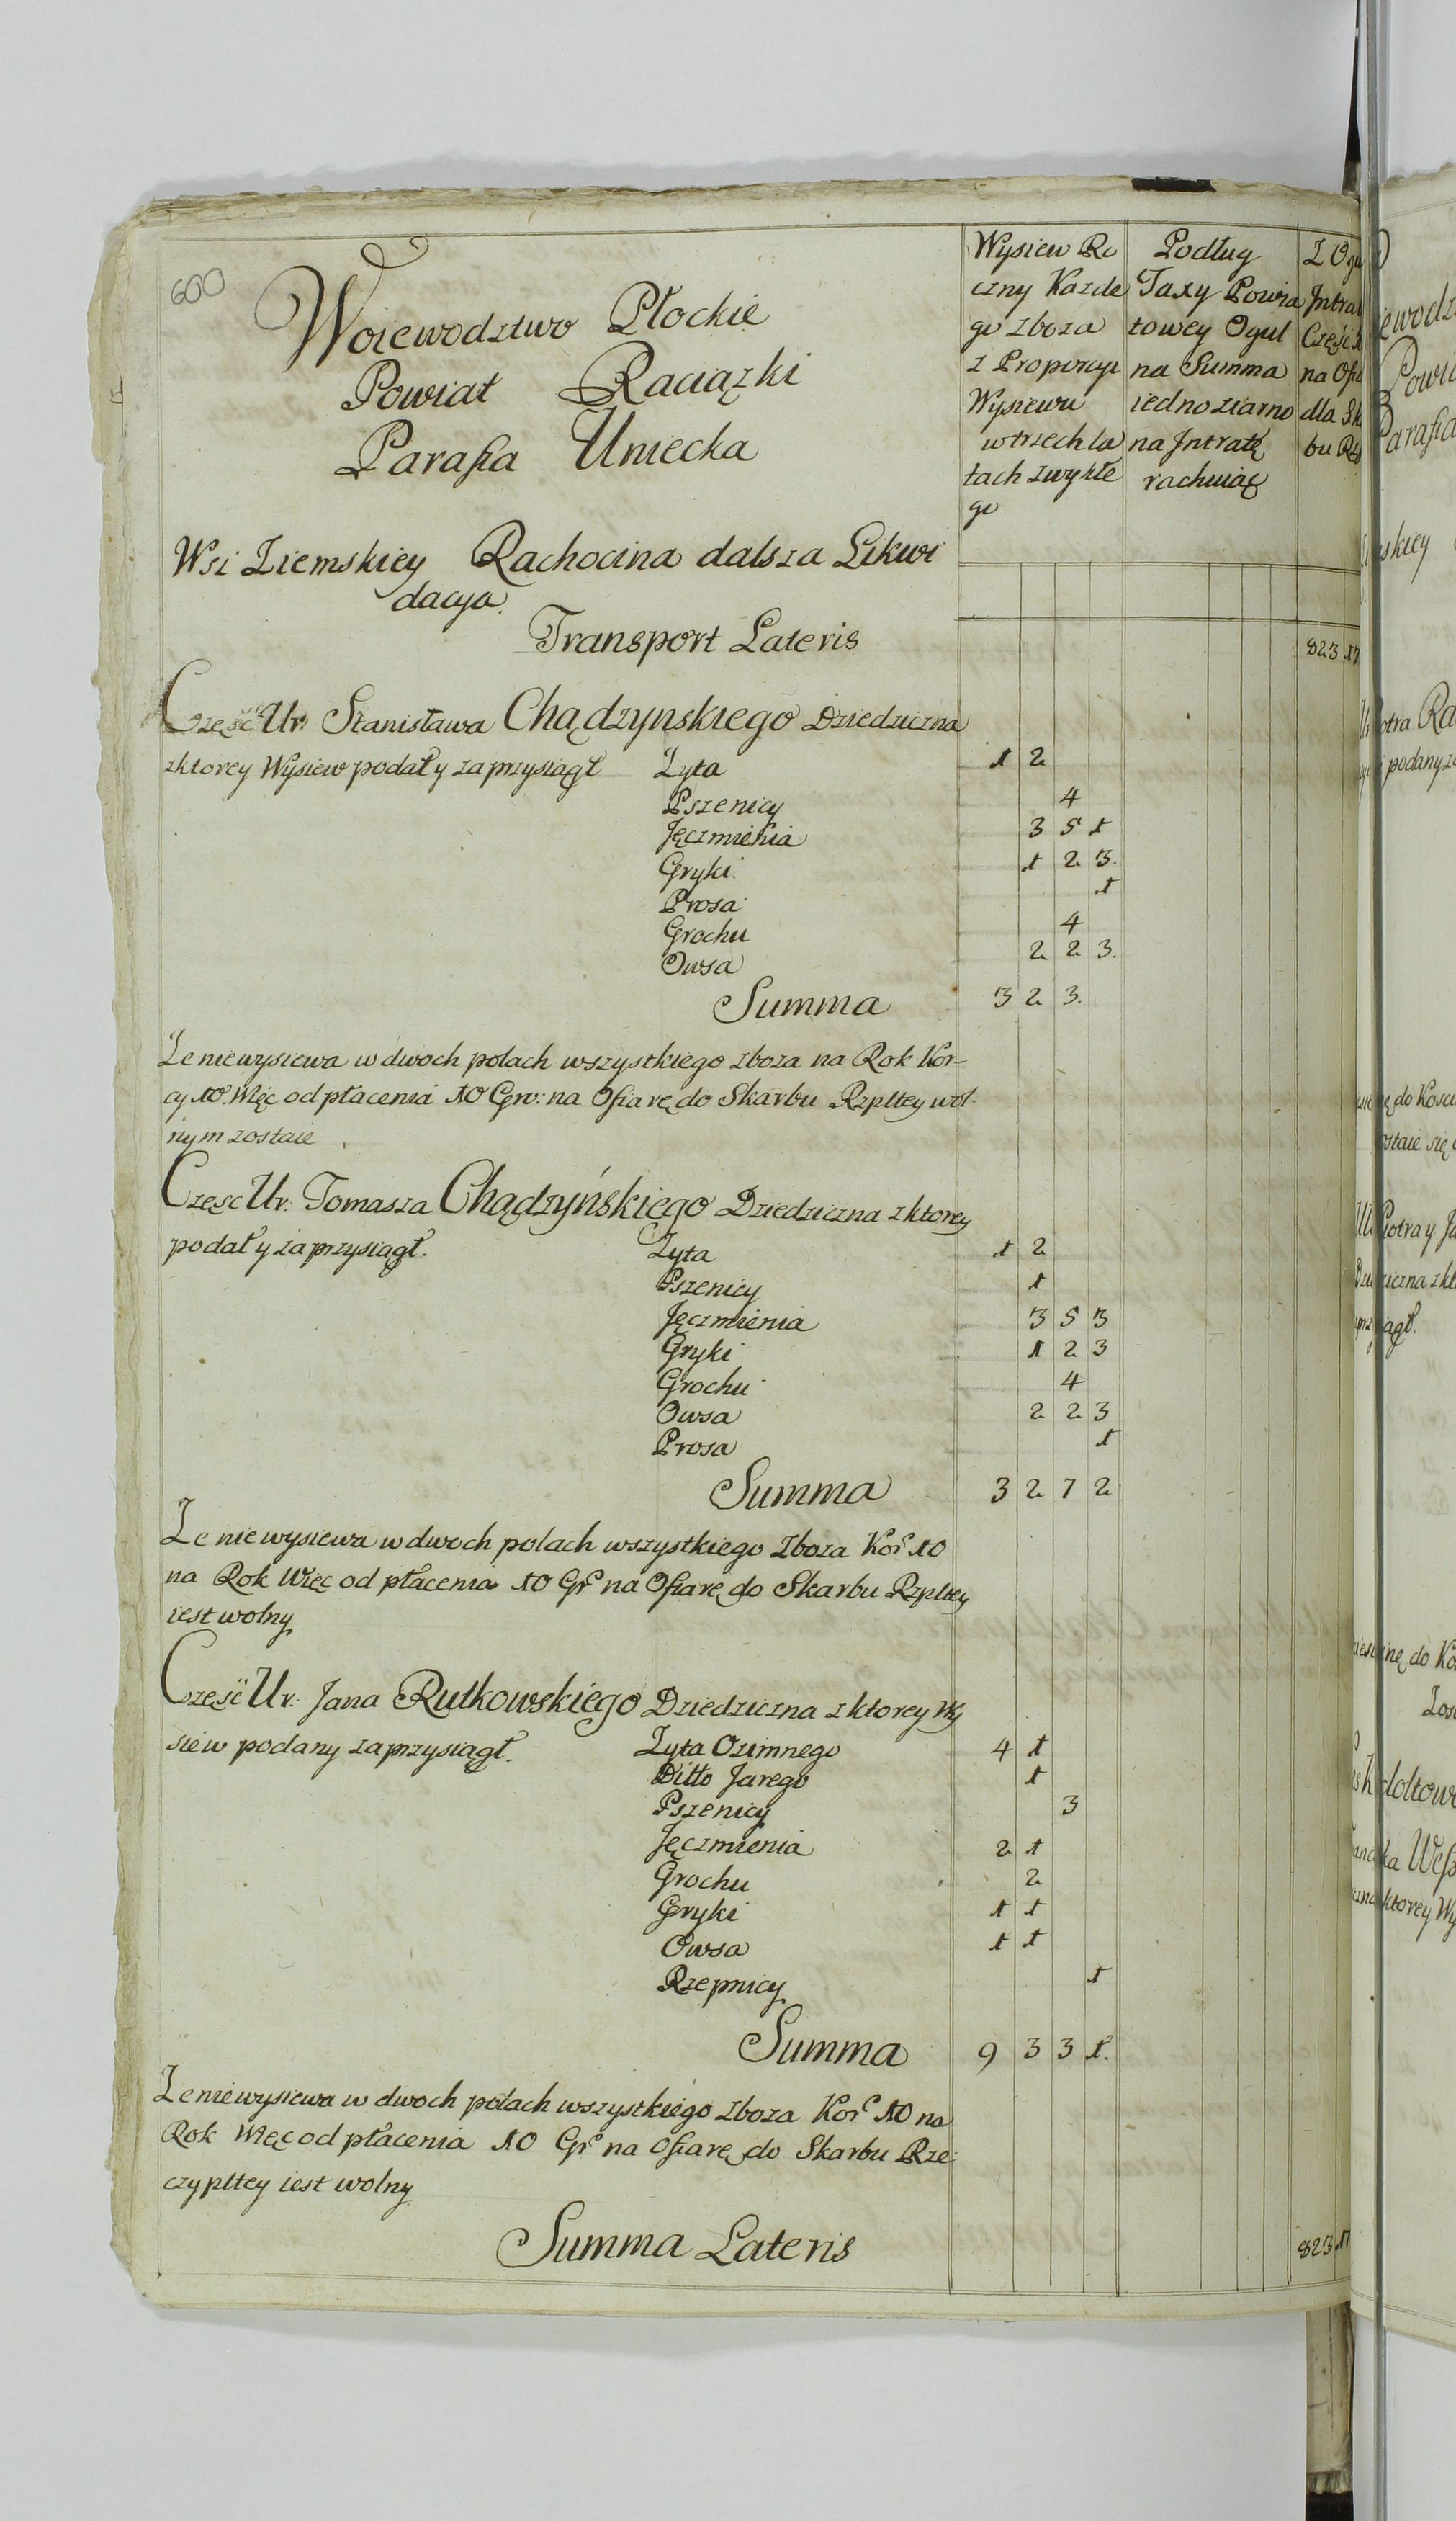 600
Woiewodztwo Płockie
Powiat Raciązki
Parafia Uniecka
Wysiew Ro
czny Kazde
go zboza
z Proporcyi
Wysiewu
w trzech la
tach zwykłe
go
Podług
Taxy Powia
towey Ogul
na Summa
iedno ziarno
na Jntratę
rachuiąc
Z Ogu
Jntrat
Część
na Ofia
dla Sk
bu Rz
Wsi Ziemskiey Rachocina dalsza Likwi
dacya.
Transport Lateris 823 17
Częsć Ur: Stanisława Chądzynskiego Dziedziczna
zktorey Wysiew podał y zaprzysiągł Zyta 1 2
Pszenicy 4
Jęczmienia 3 5 1
Gryki 1 2 3.
Prosa 1
Grochu 4
Owsa 2 2 3.
Summa 3 2 3.
Ze niewysiewa w dwoch polach wszystkiego zboza na Rok Kor-
cy 10. Więc od płacenia 10 Gro: na Ofiarę do Skarbu Rzpltey wol-
nym zostaie
Częsc Ur: Tomasza Chądzyńskiego Dziedziczna zktorey
podał y zaprzysiągł. Zyta 1 2
Pszenicy 1
Jęczmienia 3 5 3
Gryki 1 2 3
Grochu 4
Owsa 2 2 3
Prosa 1
Summa 3 2 7 2
Ze niewysiewa w dwoch polach wszystkiego Zboza Kor 10
na Rok Więc od płacenia 10 Gr na Ofiarę do Skarbu Rzpltey
iest wolny
Częsć Ur: Jana Rutkowskiego Dziedziczna zktorey Wy
siew podany zaprzysiągł. Zyta Ozimnego 4 1
Ditto Jarego 1
Pszenicy 3
Jęczmienia 2 1
Grochu 2
Gryki 1 1
Owsa 1 1
Rzepnicy 1
Summa 9 3 3 1.
Ze niewysiewa w dwoch polach wszystkiego zboza Kor 10 na
Rok Więc od płacenia 10 Gr na Ofiarę do Skarbu Rze-
czypltey iest wolny
Summa Lateris 823 17